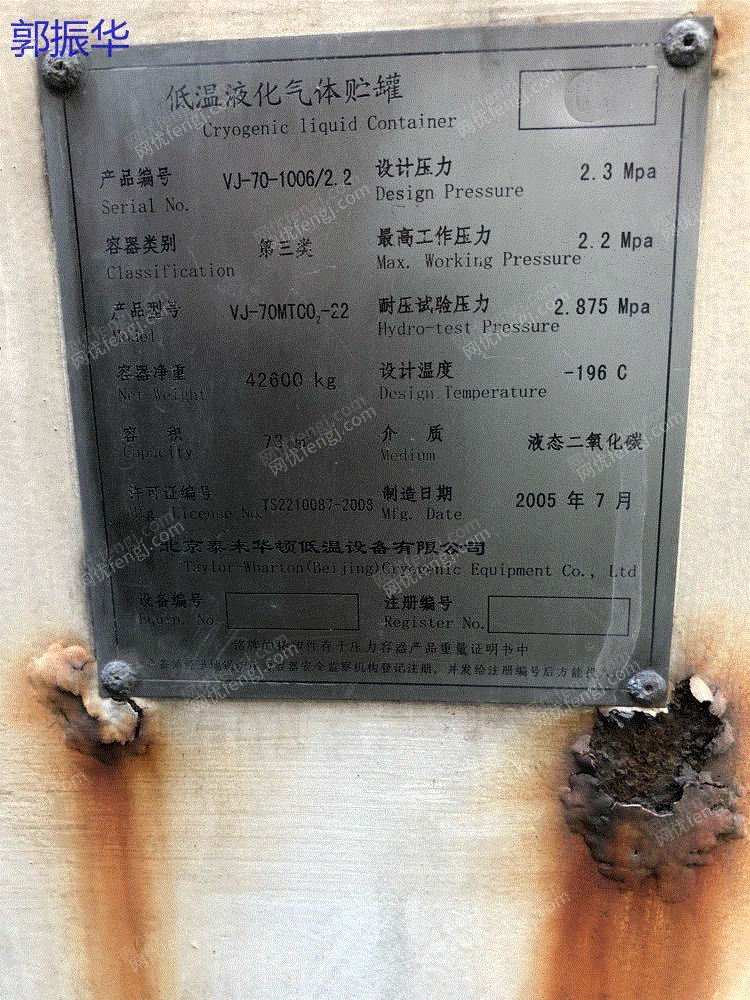 郭振华
低温液化气体贮罐
Cryogenic liquid Container
产品编号 VJ-70-1006/2.2 设计压力 2.3 Mpa
Serial No. Design Pressure
容器类别 第三类 最高工作压力 2.2 Mpa
Classification Max. Working Pressure
产品型号 VJ-70MTCO₂-22 耐压试验压力 2.875 Mpa
Model Hydro-test Pressure
容器净重 42600 kg 设计温度 -196 C
Net Weight Design Temperature
容 积 73 m³ 介 质 液态二氧化碳
Capacity Medium
许可证编号 TS2210087-2008 制造日期 2005 年 7 月
Mfg. License No. Mfg. Date
北京泰来华顿低温设备有限公司
Taylor-Wharton(Beijing)Cryogenic Equipment Co., Ltd
设备编号 注册编号
Equip. No. Register No.
铭牌的拓印件存于压力容器产品质量证明书中
安全监察机构登记注册，并发给注册编号后方能
网优fengj.com